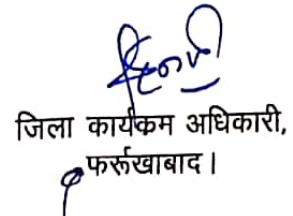 जिला कार्यकम अधिकारी,
फर्रूखाबाद।